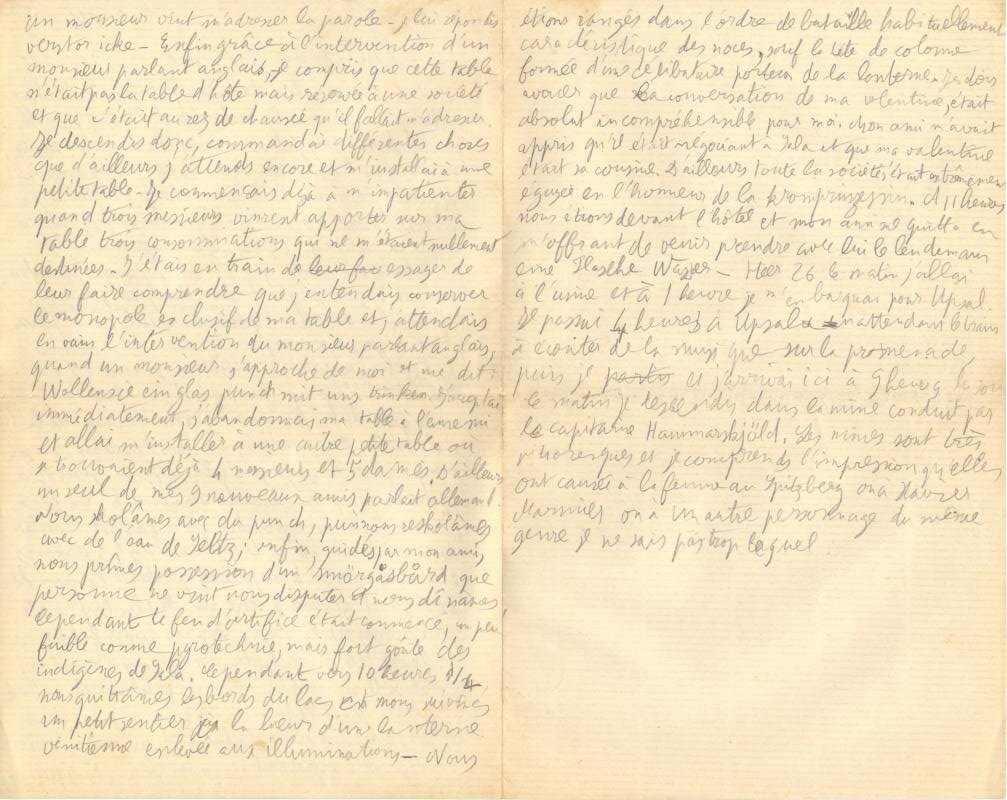 un monsieur vint m'adresser la parole - je lui répondis
verstor icke - Enfin grâce à l'intervention d'un
monsieur parlant anglais, je compris que cette table
n'était pas la table d'hôte mais réservée à une société
et que c'était au rez de chaussé qu'il fallait m'adresser.
Je descendis donc, commandai différentes choses
que d'ailleurs j'attends encore et m'installai à une
petite table - Je commençais déjà à m'impatienter
quand trois messieurs vinrent apporter sur ma
table trois consommations qui ne m'étaient nullement
destinées. J'étais en train de leur fai essayer de
leur faire comprendre que j'entendais conserver
le monopole exclusif de ma table et j'attendais
en vain l'intervention du monsieur parlant anglais,
quand un monsieur s'approche de moi et me dit:
Wollen sie ein glas punch mit uns trinken. J'acceptai
immédiatement, j'abandonnai ma table à l'ennemi
et allai m'installer à une autre petite table où
se trouvaient déjà 4 messieurs et 5 dames. D'ailleurs
un seul de mes 9 nouveaux amis parlait allemand
Nous skolâmes avec du punch, puis nous reskolâmes
avec de l'eau de Seltz; enfin, guidés par mon ami,
nous prîmes possession d'un smörgåsbård que
personne ne vint nous disputer et nous dînames,
Cependant le feu d'artifice était commencé, un peu
faible comme pyrotechnie, mais fort goûté des
indigènes de Fala. Cependant vers 10 heures 3/4
nous quittâmes les bords du lac et nous suivîmes
un petit sentier à la lueur d'une lanterne
vénitienne enlevée aux illuminations - Nous
étions rangés dans l'ordre de bataille habituellement
caractéristique des noces, sauf la tête de colonne
formée d'un célibataire porteur de la lanterne. Je dois
avouer que la conversation de ma valentine, était
absolut incompréhensible pour moi. Mon ami m'avait
appris qu'il était négociant à Fala et que ma valentine
était sa cousine. D'ailleurs toute la société s'était extrêmement
égayée en l'honneur de la kronprinzessin. A 11 heures
nous étions devant l'hôtel et mon ami me quitta en
m'offrant de venir prendre avec lui le lendemain
eine Flasche Wasser - Hier 26 le matin j'allai
à l'usine et à 1 heure je m'embarquai pour Upsal.
Je passai 4 heures à Upsala en attendant le train
à écouter de la musique sur la promenade,
puis je partis et j'arrivai ici à 9 heures le soir
Ce matin je descendis dans la mine conduit par
le capitaine Hammarskjöld. Les mines sont très
pittoresques et je comprends l'impression qu'elles
ont causée à la femme au Spitzberg ou à Xavier
Marmier ou à un autre personnage du même
genre je ne sais pas trop lequel.